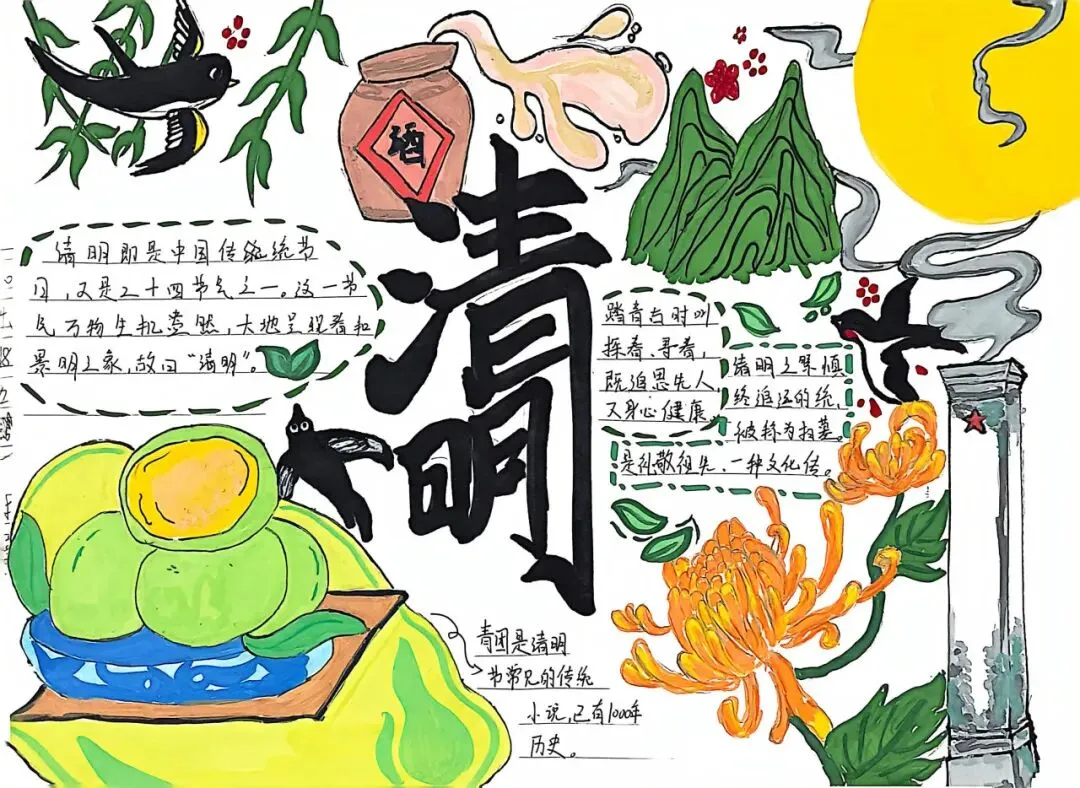 酒
清明
清明即是中国传统统节
日,又是二十四节气之一。这一节
气万物生机盎然,大地呈现春和
景明之象,故曰“清明”。
踏青古时叫
探春、寻春,
既追思先人
又身心健康
清明之祭慎
终追远的统,
被称为扫墓。
是礼敬祖先、一种文化传。
青团是清明
节常见的传统
小说,已有1000年
历史。